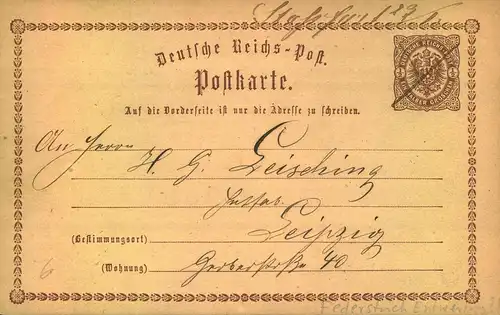 Deutsche Reichs-Post.
Postkarte.
Auf die Vorderseite ist nur die Adresse zu schreiben.
An Herrn
H. G. Leisching
(Bestimmungsort) Leipzig
(Wohnung) Gerberstraße 40.
Federstrich Entwertung